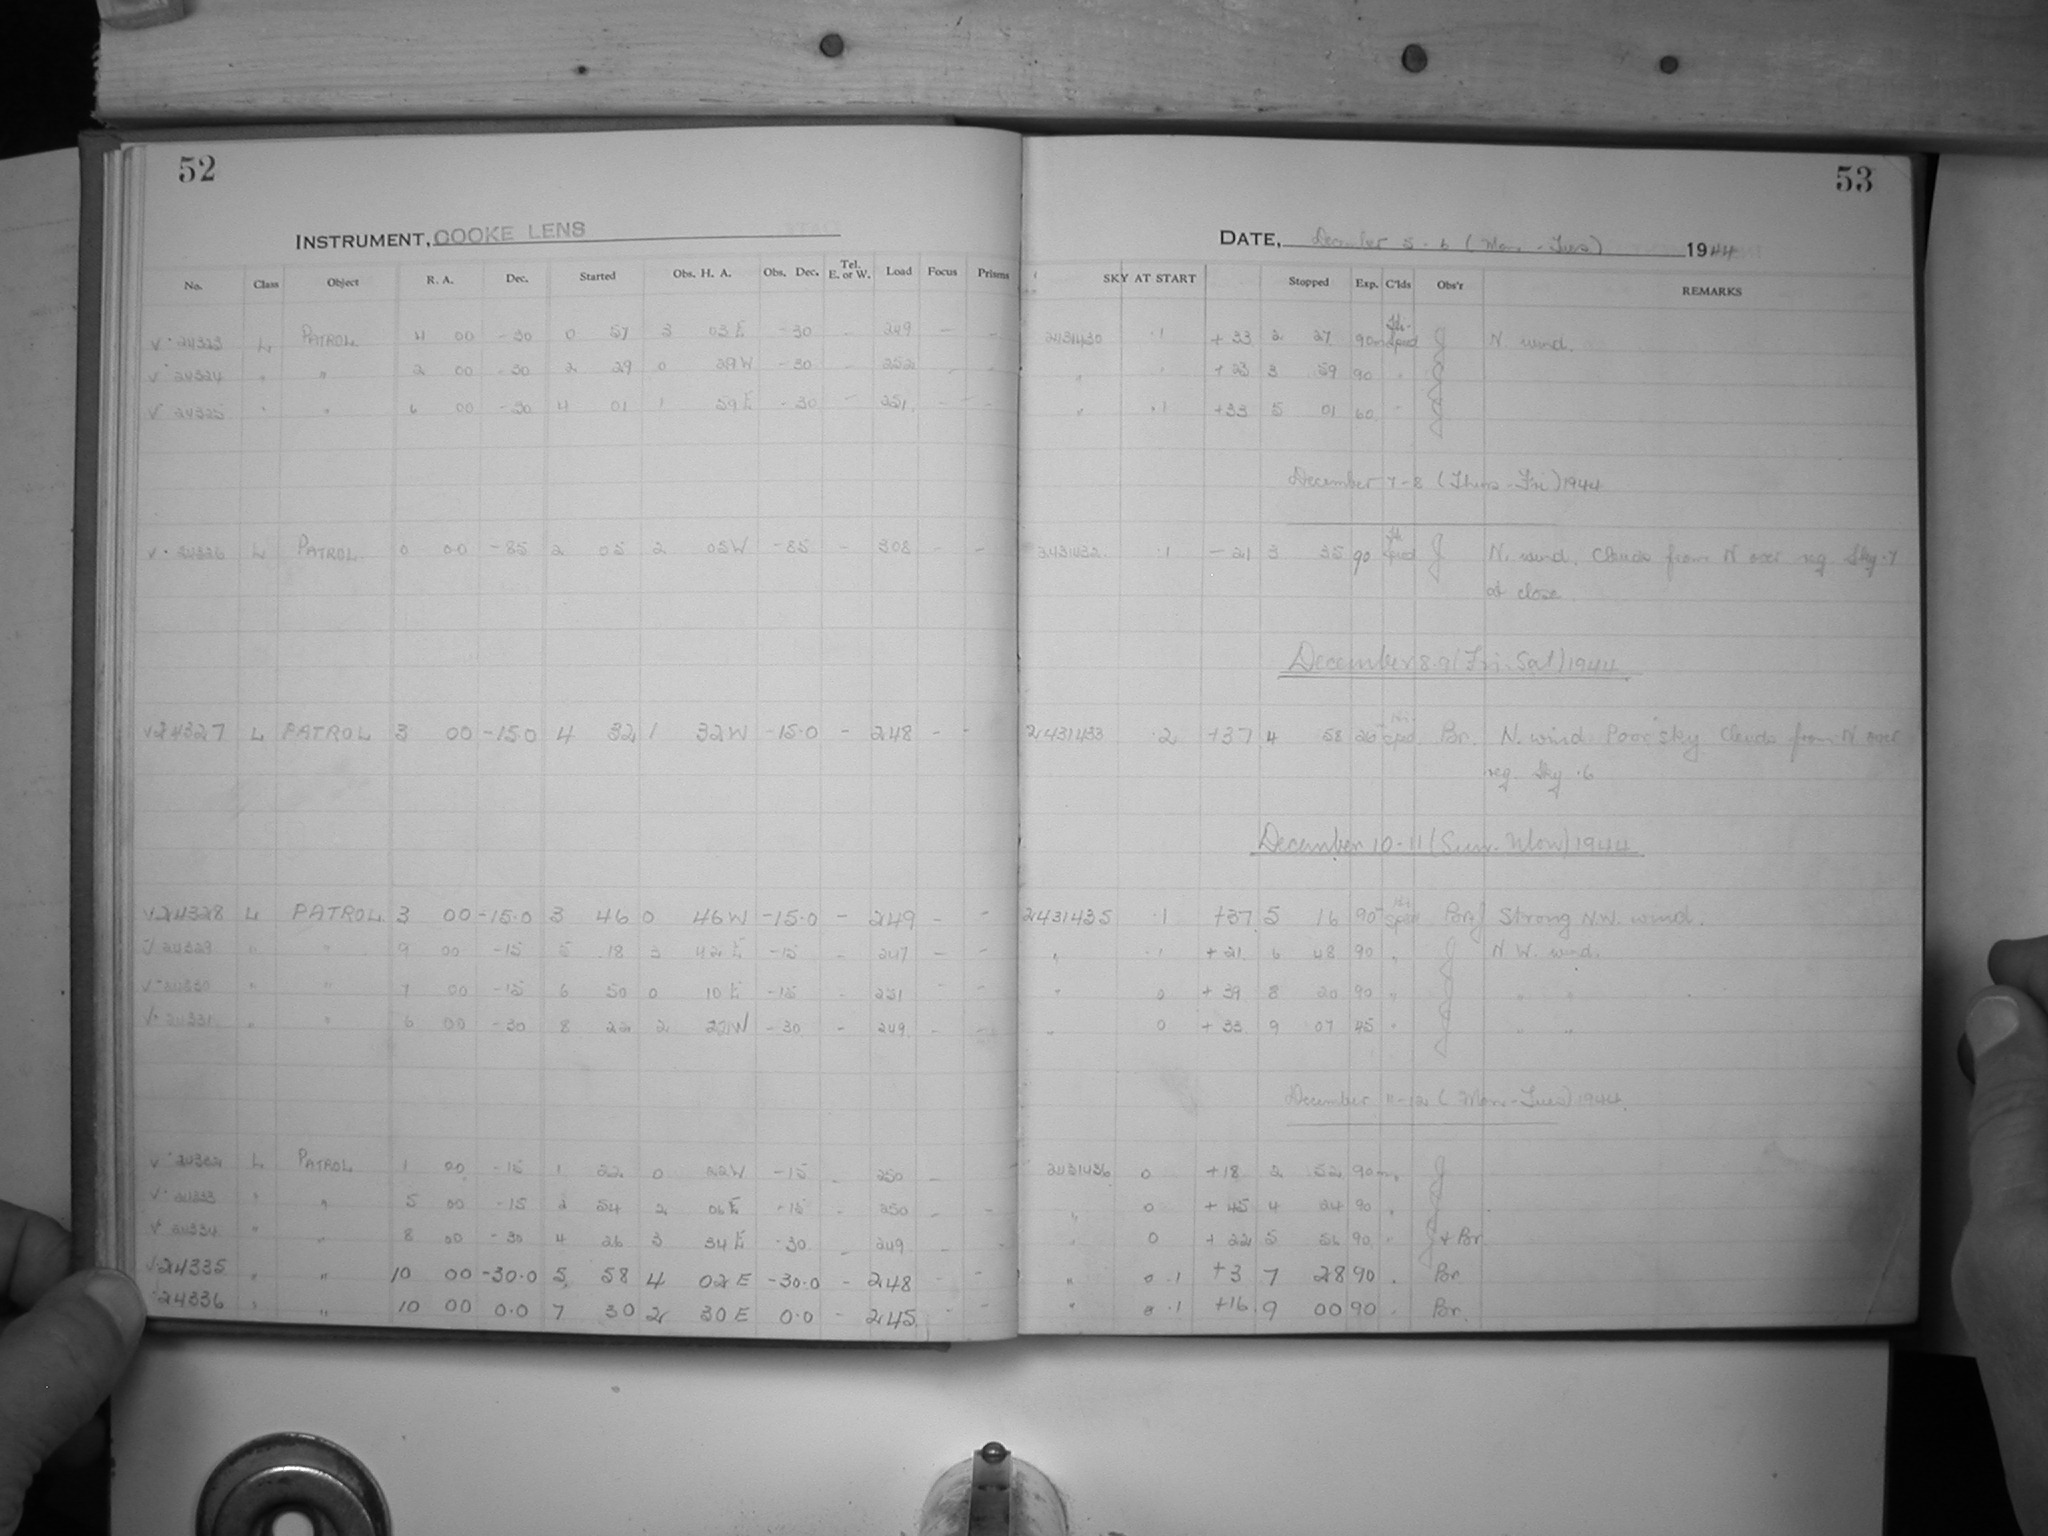 52
INSTRUMENT, COOKE LENS
No. Class Object R. A. Dec. Started Obs. H. A. Obs. Dec. Tel. E. or W. Load Focus Prisms
v·24323 L PATROL 4 00 -30 0 57 3 03 E -30 - 249 - -
v·24324 " " 2 00 -30 2 29 0 29W -30 - 252 - -
v 24325 " " 6 00 -30 4 01 1 59 E -30 - 251 - -
v·24326 L PATROL 0 00 -85 2 05 2 05W -85 - 308 - -
v24327 L PATROL 3 00 -15.0 4 32 1 32W -15.0 - 248 - -
v24328 L PATROL 3 00 -15.0 3 46 0 46W -15.0 - 249 - -
v 24329 " " 9 00 -15 5 18 3 42 E -15 - 247 - -
v·24330 " " 7 00 -15 6 50 0 10 E -15 - 251 - -
v·24331 " " 6 00 -30 8 22 2 22W -30 - 249 - -
v·24332 L PATROL 1 00 -15 1 22 0 22W -15 - 250 -
v·24333 " " 5 00 -15 2 54 2 06 E -15 - 250 - -
v·24334 " " 8 00 -30 4 26 3 34 E -30 - 249 - -
v·24335 " " 10 00 -30.0 5 58 4 02 E -30.0 - 248 - -
·24336 " " 10 00 0.0 7 30 2 30 E 0.0 - 245 - -
53
DATE, December 5-6 (Mon.-Tues) 1944
SKY AT START Stopped Exp. C'lds Obs'r REMARKS
2431430 .1 +33 2 27 90m J N. wind.
" " +23 3 59 90 " J
" .1 +33 5 01 60 " J
December 7-8 (Thurs-Fri) 1944
2431432 .1 -21 3 35 90 J N. wind. Clouds from N over reg Sky .7
at close.
December 8.9 (Fri. Sat) 1944
2431433 .2 +37 4 58 26 Br. N. wind Poor sky Clouds from N over
reg. Sky .6
December 10-11 (Sun. Mon) 1944
2431435 .1 +37 5 16 90 Strong N.W. wind.
" .1 +21 6 48 90 " J N W. wind.
" 0 +39 8 20 90 " J " "
" 0 +33 9 07 45 " J " "
December 11-12 (Mon-Tues) 1944
2431436 0 +18 2 52 90m " J
" 0 +45 4 24 90 " J
" 0 +22 5 56 90 " J + Br.
" 0 .1 +3 7 28 90 " Br.
" 0 .1 +16 9 00 90 " Br.